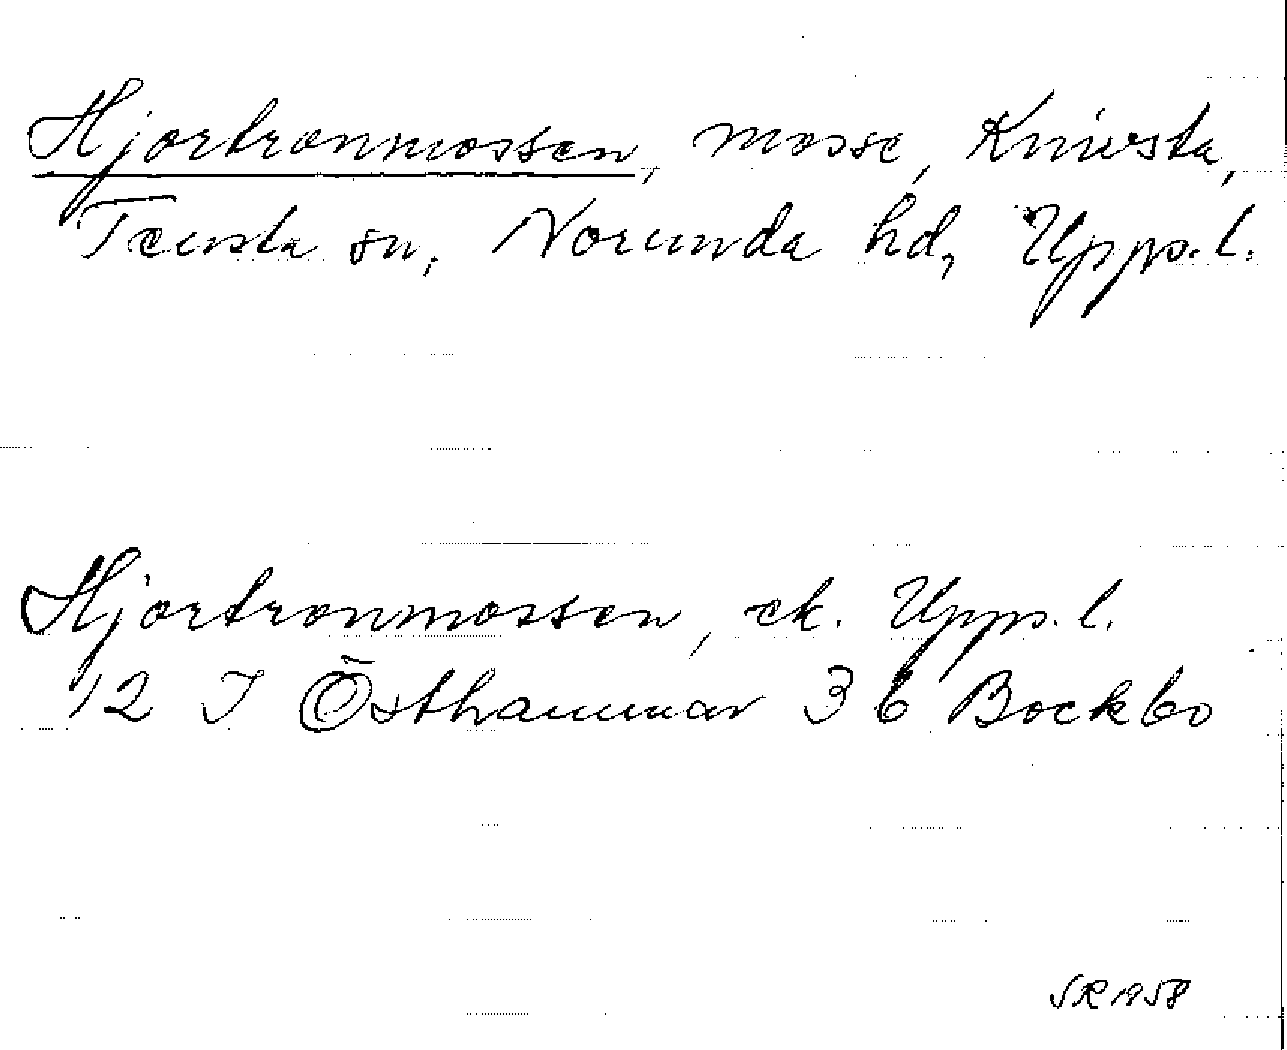 Hjortronmossen, mosse, Knivsta,
Tensta sn, Norunda hd, Upps. l.
Hjortronmossen, ek. Upps. l.
12 I Östhammar 3 b Bockbo
SR 1958